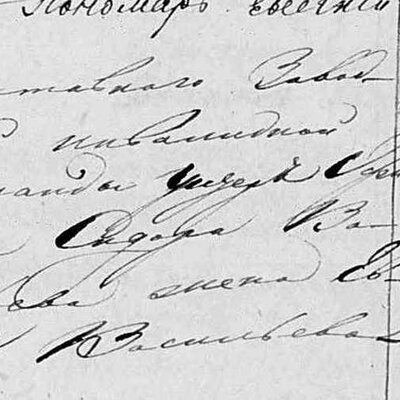 Пономарь Евгений
тавного Завод
инвалидной
манды унтеръ Офи
Сидора Ва
ева жена Ев
Васильева